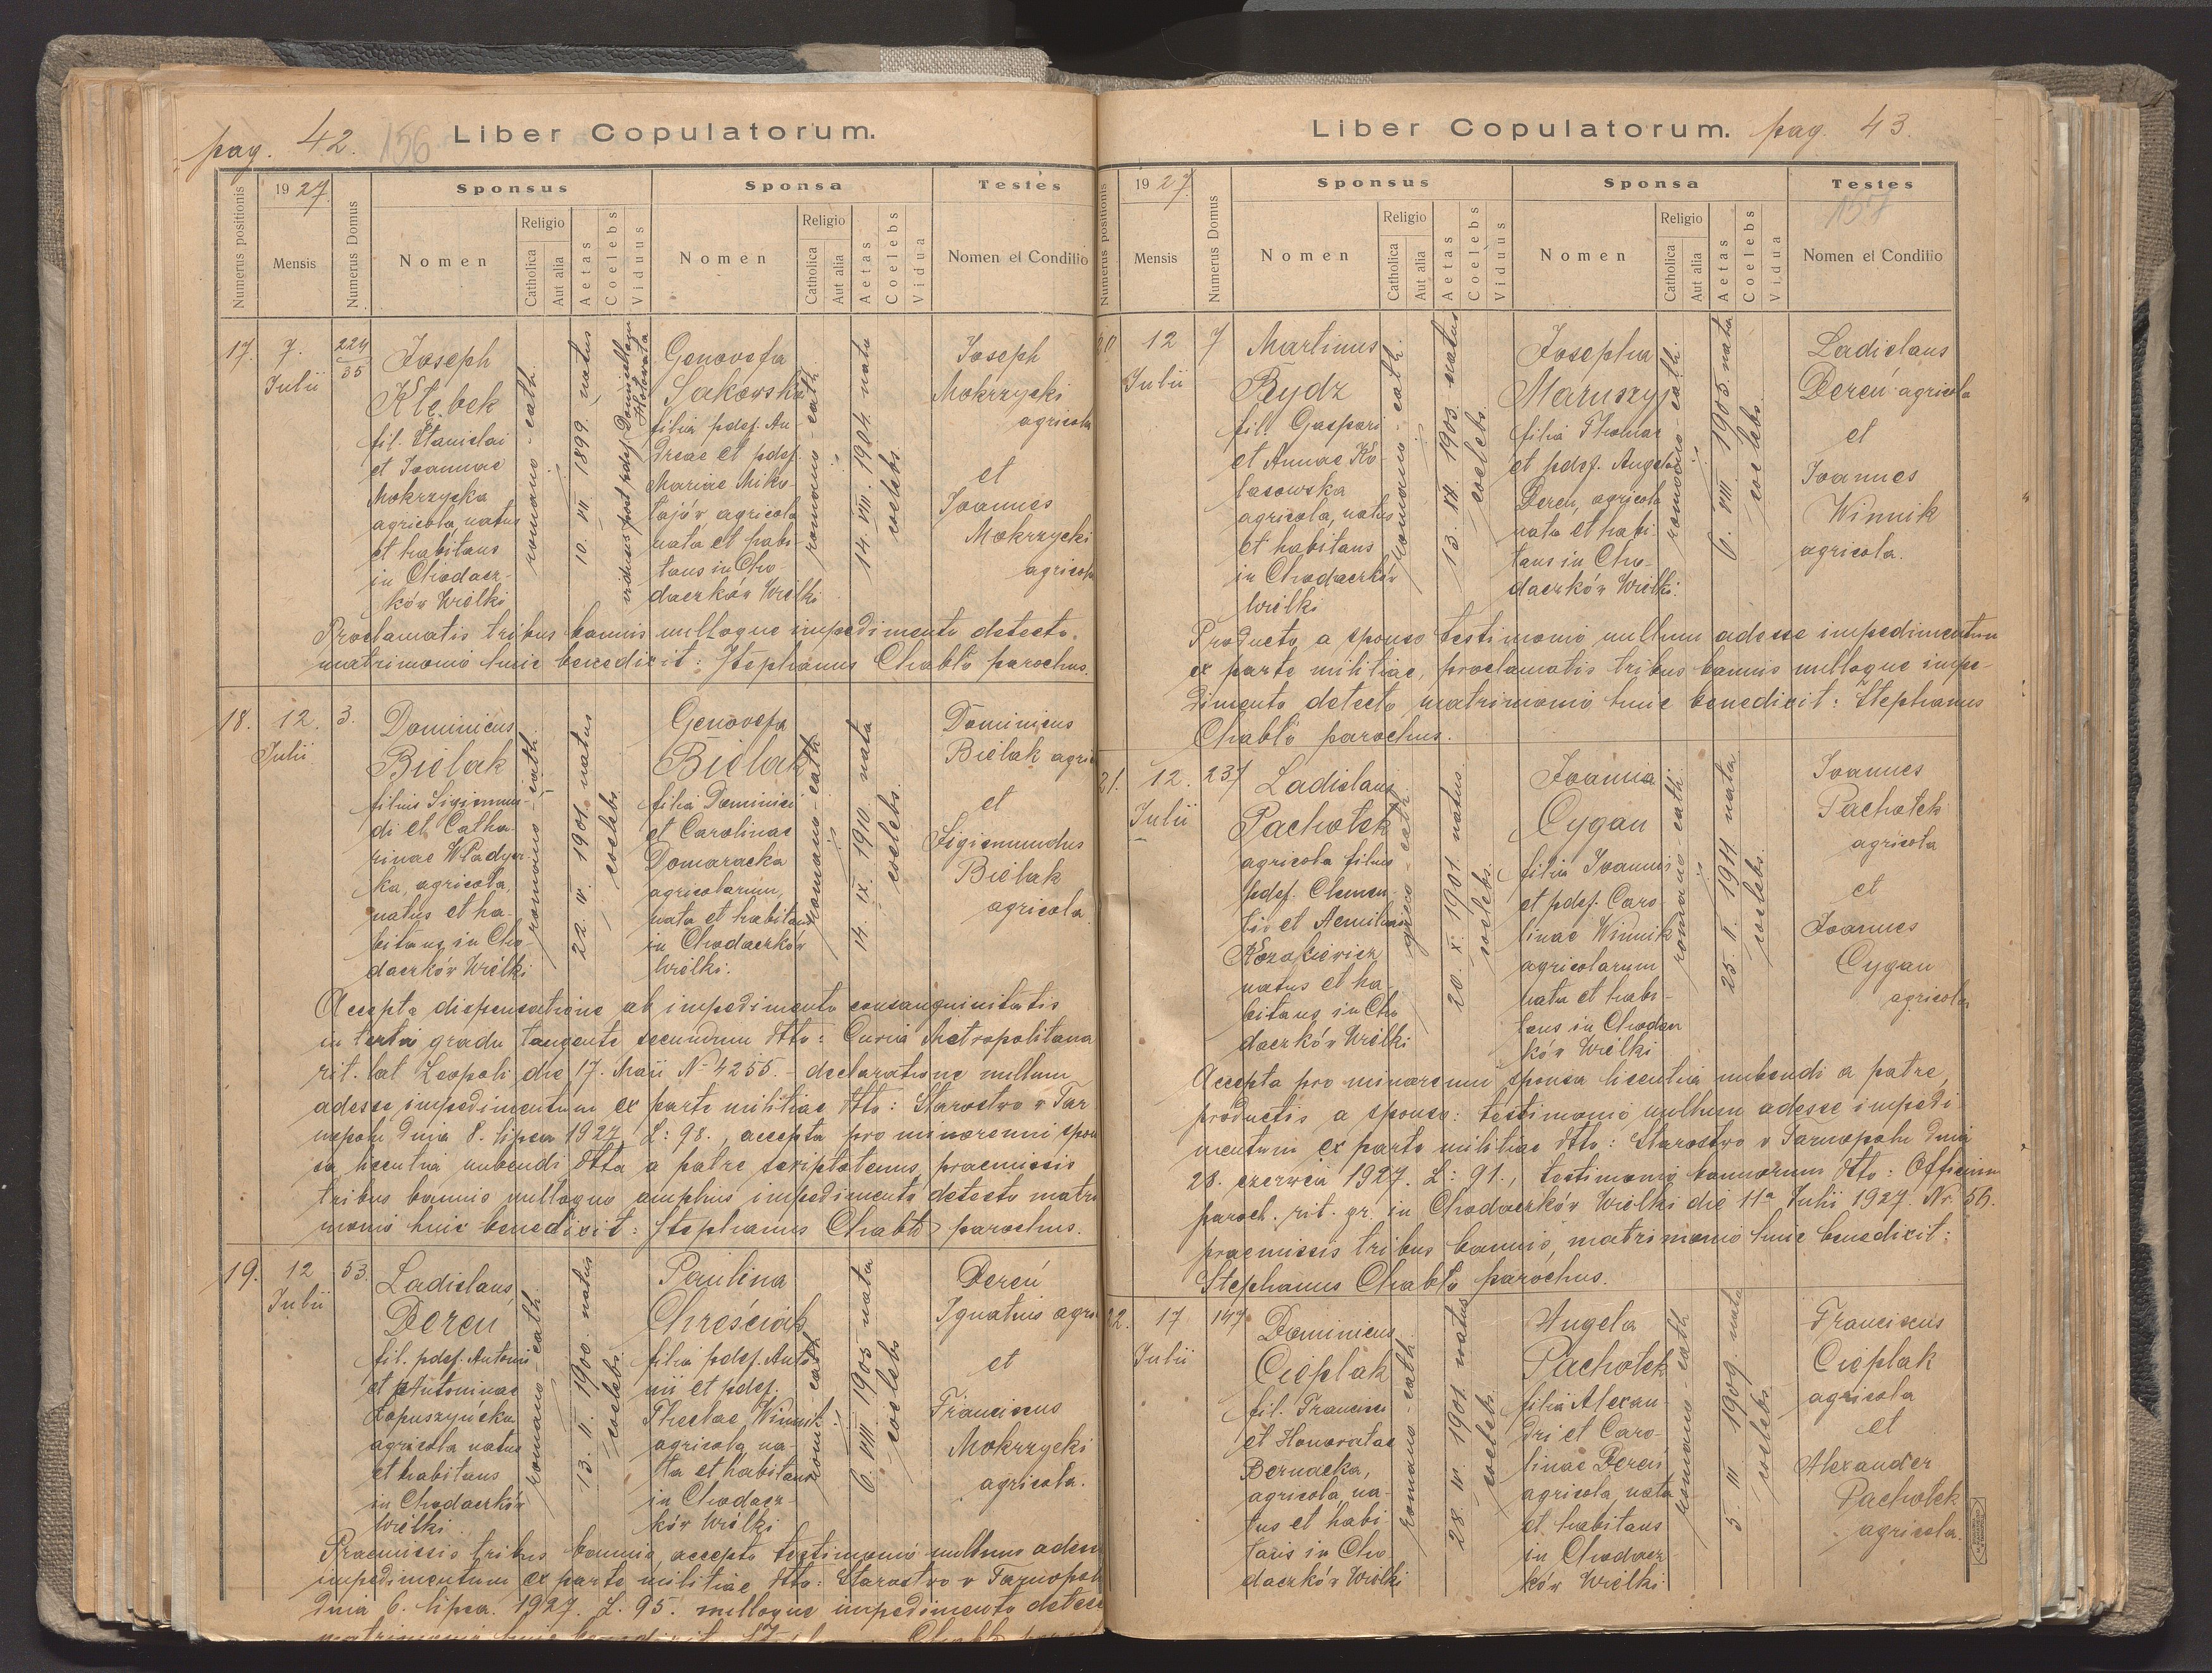 pag. 42. 156 Liber Copulatorum.
Numerus positionis
1927
Mensis
Numerus Domus
Sponsus
Nomen
Religio
Catholica
Aut alia
Aetas
Coelebs
Viduus
Sponsa
Nomen
Religio
Catholica
Aut alia
Aetas
Coelebs
Vidua
Testes
Nomen et Conditio
17.
7.
Julii
224
35
Joseph
Kłębek
fil. Stanislai
et Joannae
Mokrzycka
agricola, natus
et habitans
in Chodacz-
ków Wielki
romano-cath.
10. VII. 1899. natus
viduus post pdef. Dominicellam
Genovefa
Sakowska
filia pdef. An-
dreae et pdef.
Mariae Miko-
łajów agricola
nata et habi-
tans in Cho-
daczków Wielki
romano-cath.
14. VIII. 1904. nata
coelebs
Joseph
Mokrzycki
agricola
et
Joannes
Mokrzycki
agricola
Proclamatis tribus bannis nulloque impedimento detecto.
matrimonio huic benedixit: Stephanus Chabło parochus.
18.
12.
Julii
3.
Dominicus
Bielak
filius Sigismun-
di et Catha-
rinae Władyr-
ka, agricola,
natus et ha-
bitans in Cho-
daczków Wielki
romano-cath.
22. IV. 1901. natus
coelebs.
Genovefa
Bielak
filia Dominici
et Carolinae
Domaracka
agricolarum,
nata et habitans
in Chodaczków
Wielki.
romano-cath
14. IX. 1910. nata
coelebs.
Dominicus
Bielak agri
et
Sigismundus
Bielak
agricola
Accepta dispensatione ab impedimento consanguinitatis
in tertio gradu tangente secundum dtto: Curia Metropolitana
rit. lat Leopoli die 17. Maii N-4255. - declaratione nullum
adesse impedimentum ex parte militiae dtto: Starostwo w Tar
nopolu dnia 8. lipca 1927 L: 98., accepta pro minorenni spon
sa licentia nubendi dtta a patre scriptotenus, praemissis
tribus bannis nulloque amplius impedimento detecto matri
monio huic benedixit: Stephanus Chabło parochus.
19.
12
Julii
53.
Ladislaus
Dereń
fil. pdef. Antonii
et Antoninae
Łopuszyńska
agricola natus
et habitans
in Chodaczków
Wielki.
romano-cath.
13. II. 1900. natus
coelebs.
Paulina
Chreściak
filia pdef. Anto
nii et pdef.
Theclae Winnik
agricola na-
ta et habitans
in Chodacz-
ków Wielki
romano-cath
6. VIII. 1905 nata
coelebs
Dereń
Ignatius agri
et
Franciscus
Mokrzycki
agricola.
Praemissis tribus bannis, accepto testimonio nullum adess
impedimentum ex parte militiae dtto: Starostwo w Tarnopol
dnia 6. lipca. 1927. L. 95. nulloque impedimento detec
Liber Copulatorum. pag. 43.
157
Numerus positionis
1927
Mensis
Numerus Domus
Sponsus
Nomen
Religio
Catholica
Aut alia
Aetas
Coelebs
Viduus
Sponsa
Nomen
Religio
Catholica
Aut alia
Aetas
Coelebs
Vidua
Testes
Nomen et Conditio
20
12
Julii
7
Martinus
Bydz
fil. Gaspari
et Annae Ko-
łasowska
agricola, natus
et habitans
in Chodaczków
Wielki
romano-cath.
coelebs.
Josepha
Maruszy
filia Thomae
et pdef. Angela
Dereń, agricola
nata et habi-
tans in Cho-
daczków Wielki.
romano-cath.
6. VIII. 1905. nata
coelebs.
Ladislaus
Dereń agricola
et
Joannes
Winnik
agricola.
Producto a sponso testimonio nullum adesse impedimentum
ex parte militiae, proclamatis tribus bannis nulloque impe-
dimento detecto, matrimonio huic benedixit: Stephanus
Chabło parochus.
21.
12.
Julii
237
Ladislaus
Pachołek
agricola filius
pdef. Clemen-
tis et Aemiliae
Kozakiewicz
natus et ha-
bitans in Cho
daczków Wielki
graeco-cath.
20. X. 1901. natus
coelebs.
Joanna
Cygan
filia Joannis
et pdef. Caro
linae Winnik
agricolarum
nata et habi-
tans in Chodacz
ków Wielki
romano-cath.
25. I. 1911 nata
coelebs.
Joannes
Pachołek
agricola
et
Joannes
Cygan
agricola
Accepta pro minorenni sponsa licentia nubendi a patre,
productis a sponso: testimonio nullum adesse impedi
mentum ex parte militiae dtto: Starostwo w Tarnopolu dnia
28. czerwca 1927. L: 91., testimonio bannorum dtto: Officium
paroch. rit. gr. in Chodaczków Wielki die 11a Julii 1927 Nr. 56.
praemissis tribus bannis, matrimonio huic benedixit:
Stephanus Chabło parochus.
22.
17
Julii
147
Dominicus
Cieplak
fil. Francisci
et Honoratae
Bernacka,
agricola, na-
tus et habi-
tans in Cho
daczków Wielki
romano-cath.
28. IV. 1901. natus
coelebs.
Angela
Pachołek
filia Alexan-
dri et Caro-
linae Dereń
agricola, nata
et habitans
in Chodacz-
ków Wielki
romano-cath
5. III. 1909. nata
coelebs
Franciscus
Cieplak
agricola
et
Alexander
Pachołek
agricola.